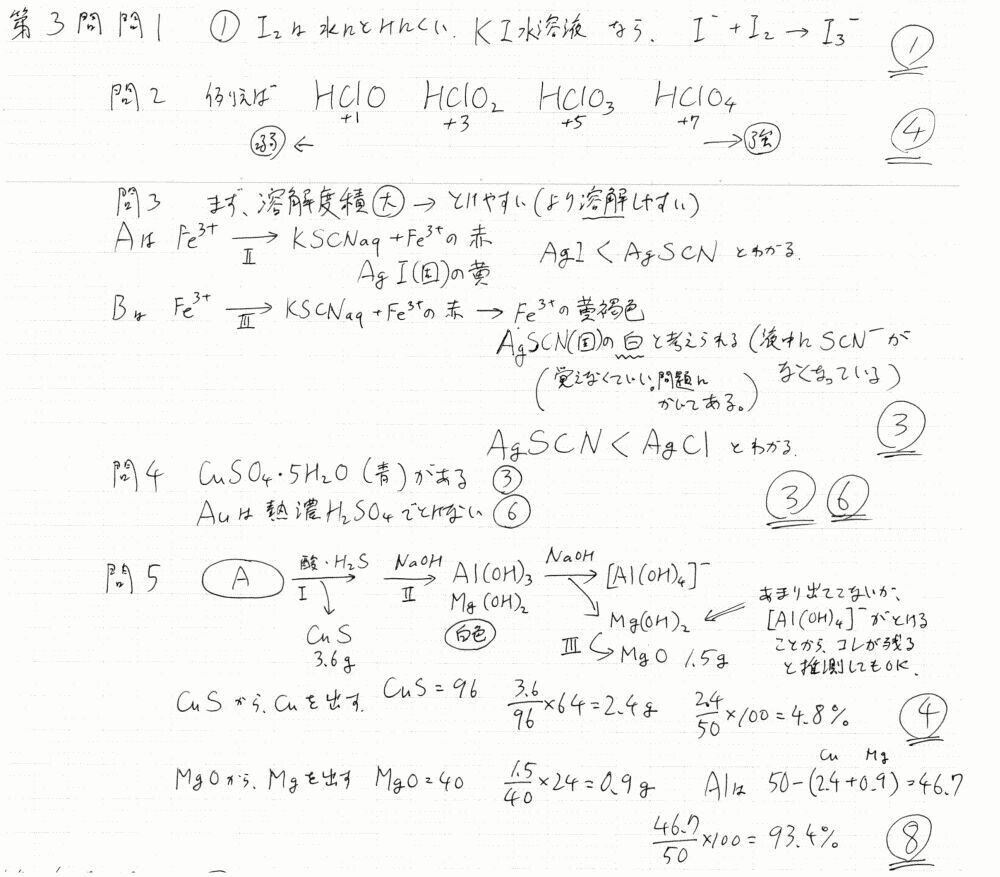 第3問 問1 ① I₂は水にとけにくい. KI水溶液なら、 I⁻+I₂→I₃⁻ ①
問2 例えば HClO HClO₂ HClO₃ HClO₄
+1 +3 +5 +7
弱 ← → 強 ④
問3 まず、溶解度積(大) → とけやすい(より溶解しやすい)
Aは Fe³⁺ →Ⅱ KSCNaq+Fe³⁺の赤
AgI(固)の黄 AgI < AgSCN とわかる.
Bは Fe³⁺ →Ⅲ KSCNaq+Fe³⁺の赤 → Fe³⁺の黄褐色
AgSCN(固)の白と考えられる(液中にSCN⁻が
なくなっている)
(覚えなくていい。問題に
かいてある。)
AgSCN < AgCl とわかる. ③
問4 CuSO₄・5H₂O (青)がある ③
Auは熱濃H₂SO₄でとけない ⑥ ③ ⑥
問5 A 酸・H₂S →Ⅰ NaOH →Ⅱ Al(OH)₃ NaOH → [Al(OH)₄]⁻
Mg(OH)₂
白色
CuS
3.6g
Mg(OH)₂
Ⅲ → MgO 1.5g
あまり出てこないが、
[Al(OH)₄]⁻がとける
ことから、コレが残る
と推測してもOK.
CuSから、Cuを出す. CuS=96 3.6/96×64=2.4g 2.4/50×100=4.8% ④
Cu Mg
MgOから、Mgを出す MgO=40 1.5/40×24=0.9g Alは 50-(2.4+0.9)=46.7
46.7/50×100=93.4% ⑧